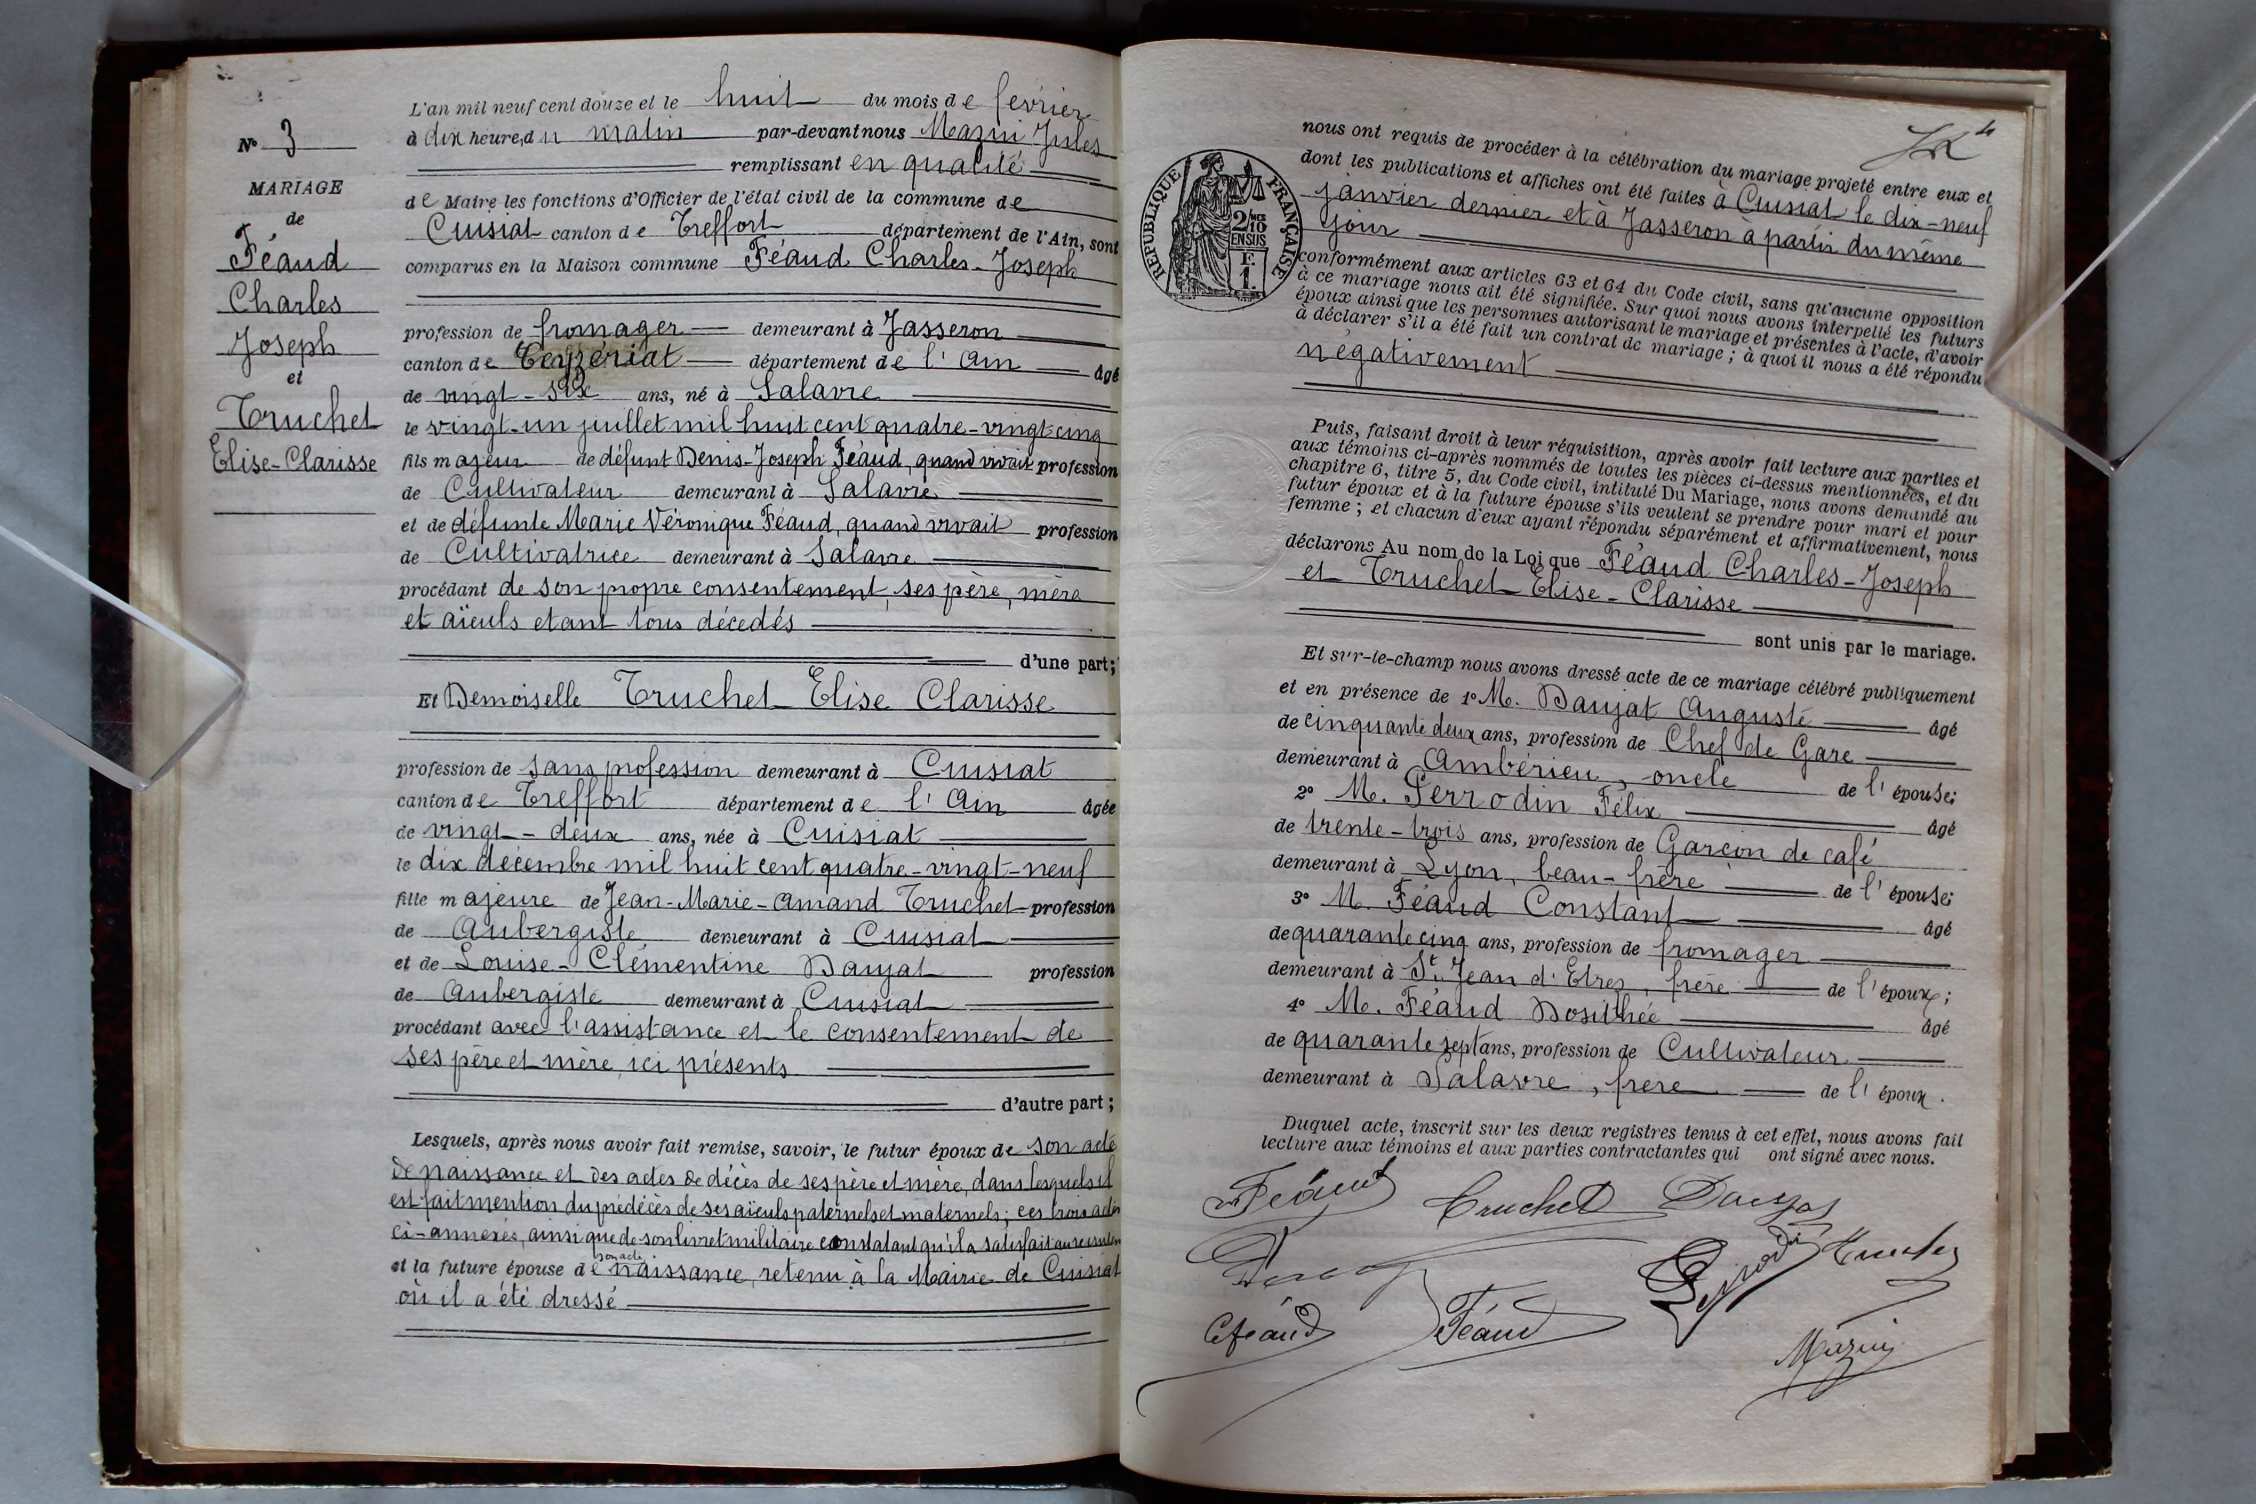 N° 3
MARIAGE
de
Féaud
Charles
Joseph
et
Truchet
Elise-Clarisse
L'an mil neuf cent douze et le huit du mois de février
à dix heure, du matin par-devant nous Mazui Jules
remplissant en qualité
de Maire les fonctions d'Officier de l'état civil de la commune de
Cuisiat canton de Treffort département de l'Ain, sont
comparus en la Maison commune Féaud Charles-Joseph
profession de fromager demeurant à Jasseron
canton de Ceyzériat département de l'Ain âgé
de vingt-six ans, né à Salavre
le vingt-un juillet mil huit cent quatre-vingt cinq
fils majeur de défunt Denis-Joseph Féaud, quand vivait profession
de Cultivateur demeurant à Salavre
et de défunte Marie Véronique Féaud, quand vivait profession
de Cultivatrice demeurant à Salavre
procédant de son propre consentement, ses père, mère
et aïeuls etant tous décédés
d'une part;
Et Demoiselle Truchet Elise Clarisse
profession de sans profession demeurant à Cuisiat
canton de Treffort département de l'Ain âgée
de vingt-deux ans, née à Cuisiat
le dix décembre mil huit cent quatre-vingt-neuf
fille majeure de Jean-Marie-Amand Truchet profession
de Aubergiste demeurant à Cuisiat
et de Louise-Clémentine Daujat profession
de Aubergiste demeurant à Cuisiat
procédant avec l'assistance et le consentement de
ses père et mère, ici présents
d'autre part;
Lesquels, après nous avoir fait remise, savoir, le futur époux de son acte
de naissance et des actes de décès de ses père et mère, dans lesquels il
est fait mention du prédécès de ses aïeuls paternels et maternels; ces trois actes
ci-annexés, ainsi que de son livret militaire constatant qu'il a satisfait au recrutem
son acte
et la future épouse de naissance, retenu à la Mairie de Cuisiat
où il a été dressé
4
RÉPUBLIQUE FRANÇAISE
2/10 MES
EN SUS
F.
1.
nous ont requis de procéder à la célébration du mariage projeté entre eux et
dont les publications et affiches ont été faites à Cuisiat le dix-neuf
janvier dernier et à Jasseron à partir du même
jour
conformément aux articles 63 et 64 du Code civil, sans qu'aucune opposition
à ce mariage nous ait été signifiée. Sur quoi nous avons interpellé les futurs
époux ainsi que les personnes autorisant le mariage et présentes à l'acte, d'avoir
à déclarer s'il a été fait un contrat de mariage; à quoi il nous a été répondu
négativement
Puis, faisant droit à leur réquisition, après avoir fait lecture aux parties et
aux témoins ci-après nommés de toutes les pièces ci-dessus mentionnées, et du
chapitre 6, titre 5, du Code civil, intitulé Du Mariage, nous avons demandé au
futur époux et à la future épouse s'ils veulent se prendre pour mari et pour
femme; et chacun d'eux ayant répondu séparément et affirmativement, nous
déclarons Au nom de la Loi que Féaud Charles-Joseph
et Truchet Elise-Clarisse
sont unis par le mariage.
Et sur-le-champ nous avons dressé acte de ce mariage célébré publiquement
et en présence de 1° M. Daujat Auguste âgé
de cinquante deux ans, profession de Chef de Gare
demeurant à Ambérieu, oncle de l'épouse;
2° M. Perrodin Félix âgé
de trente-trois ans, profession de Garçon de café
demeurant à Lyon, beau-frère de l'épouse;
3° M. Féaud Constant âgé
de quarante cinq ans, profession de fromager
demeurant à St Jean d'Etrez, frère de l'époux;
4° M. Féaud Dosithée âgé
de quarante sept ans, profession de Cultivateur
demeurant à Salavre, frère de l'époux.
Duquel acte, inscrit sur les deux registres tenus à cet effet, nous avons fait
lecture aux témoins et aux parties contractantes qui ont signé avec nous.
Féaud Truchet Daujat
Perrodin Truchet
C. féaud Féaud
Mazui